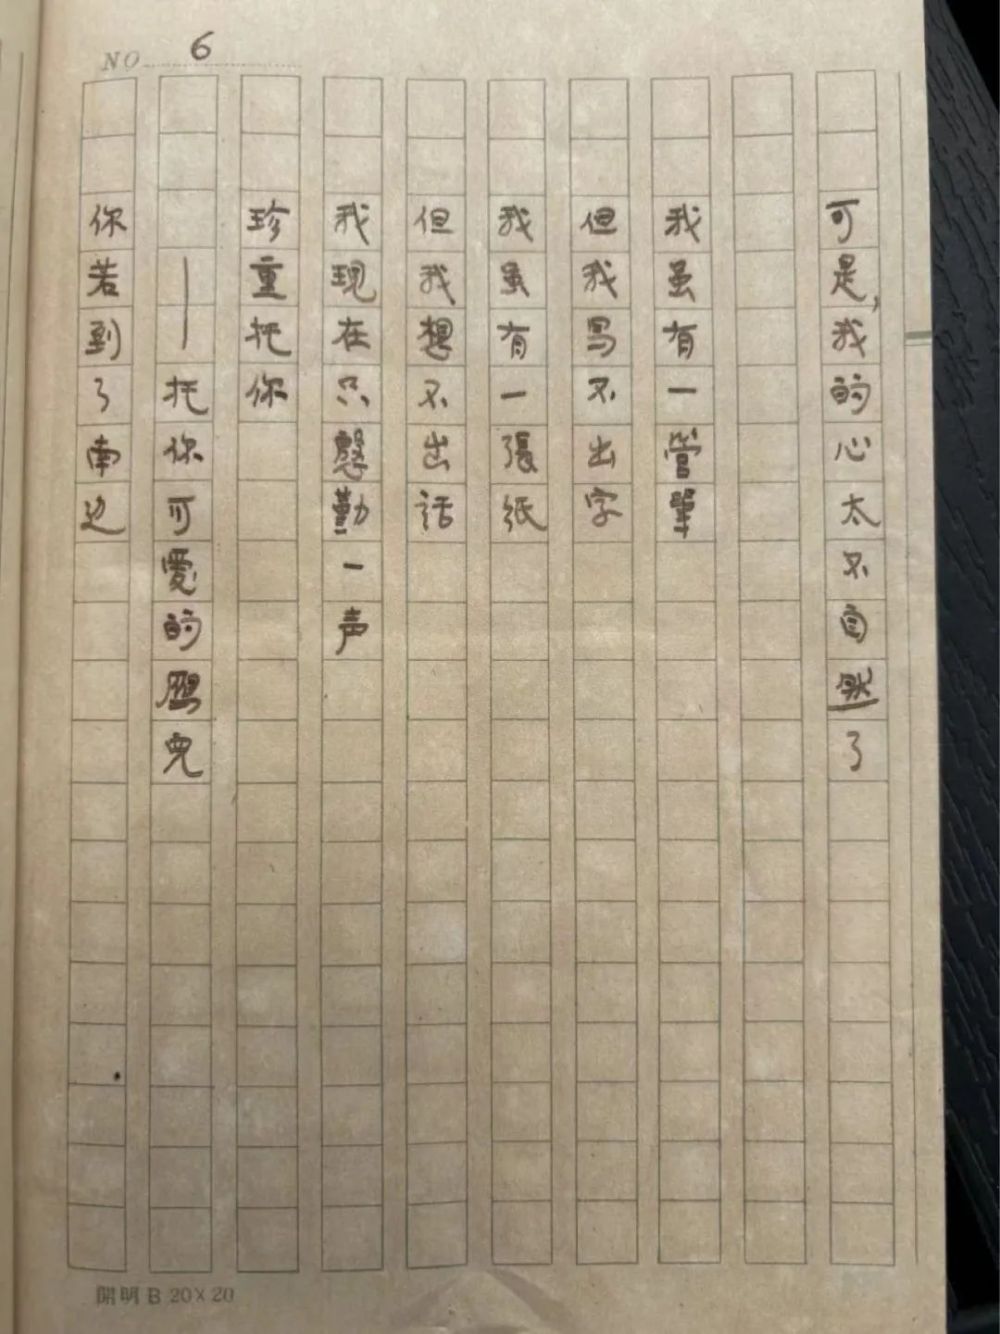 NO 6
可是，我的心太不自然了
我虽有一管笔
但我写不出字
我虽有一張紙
但我想不出話
我現在只慇勤一声
珍重托你
——托你可爱的雁兒
你若到了南边
開明B 20×20